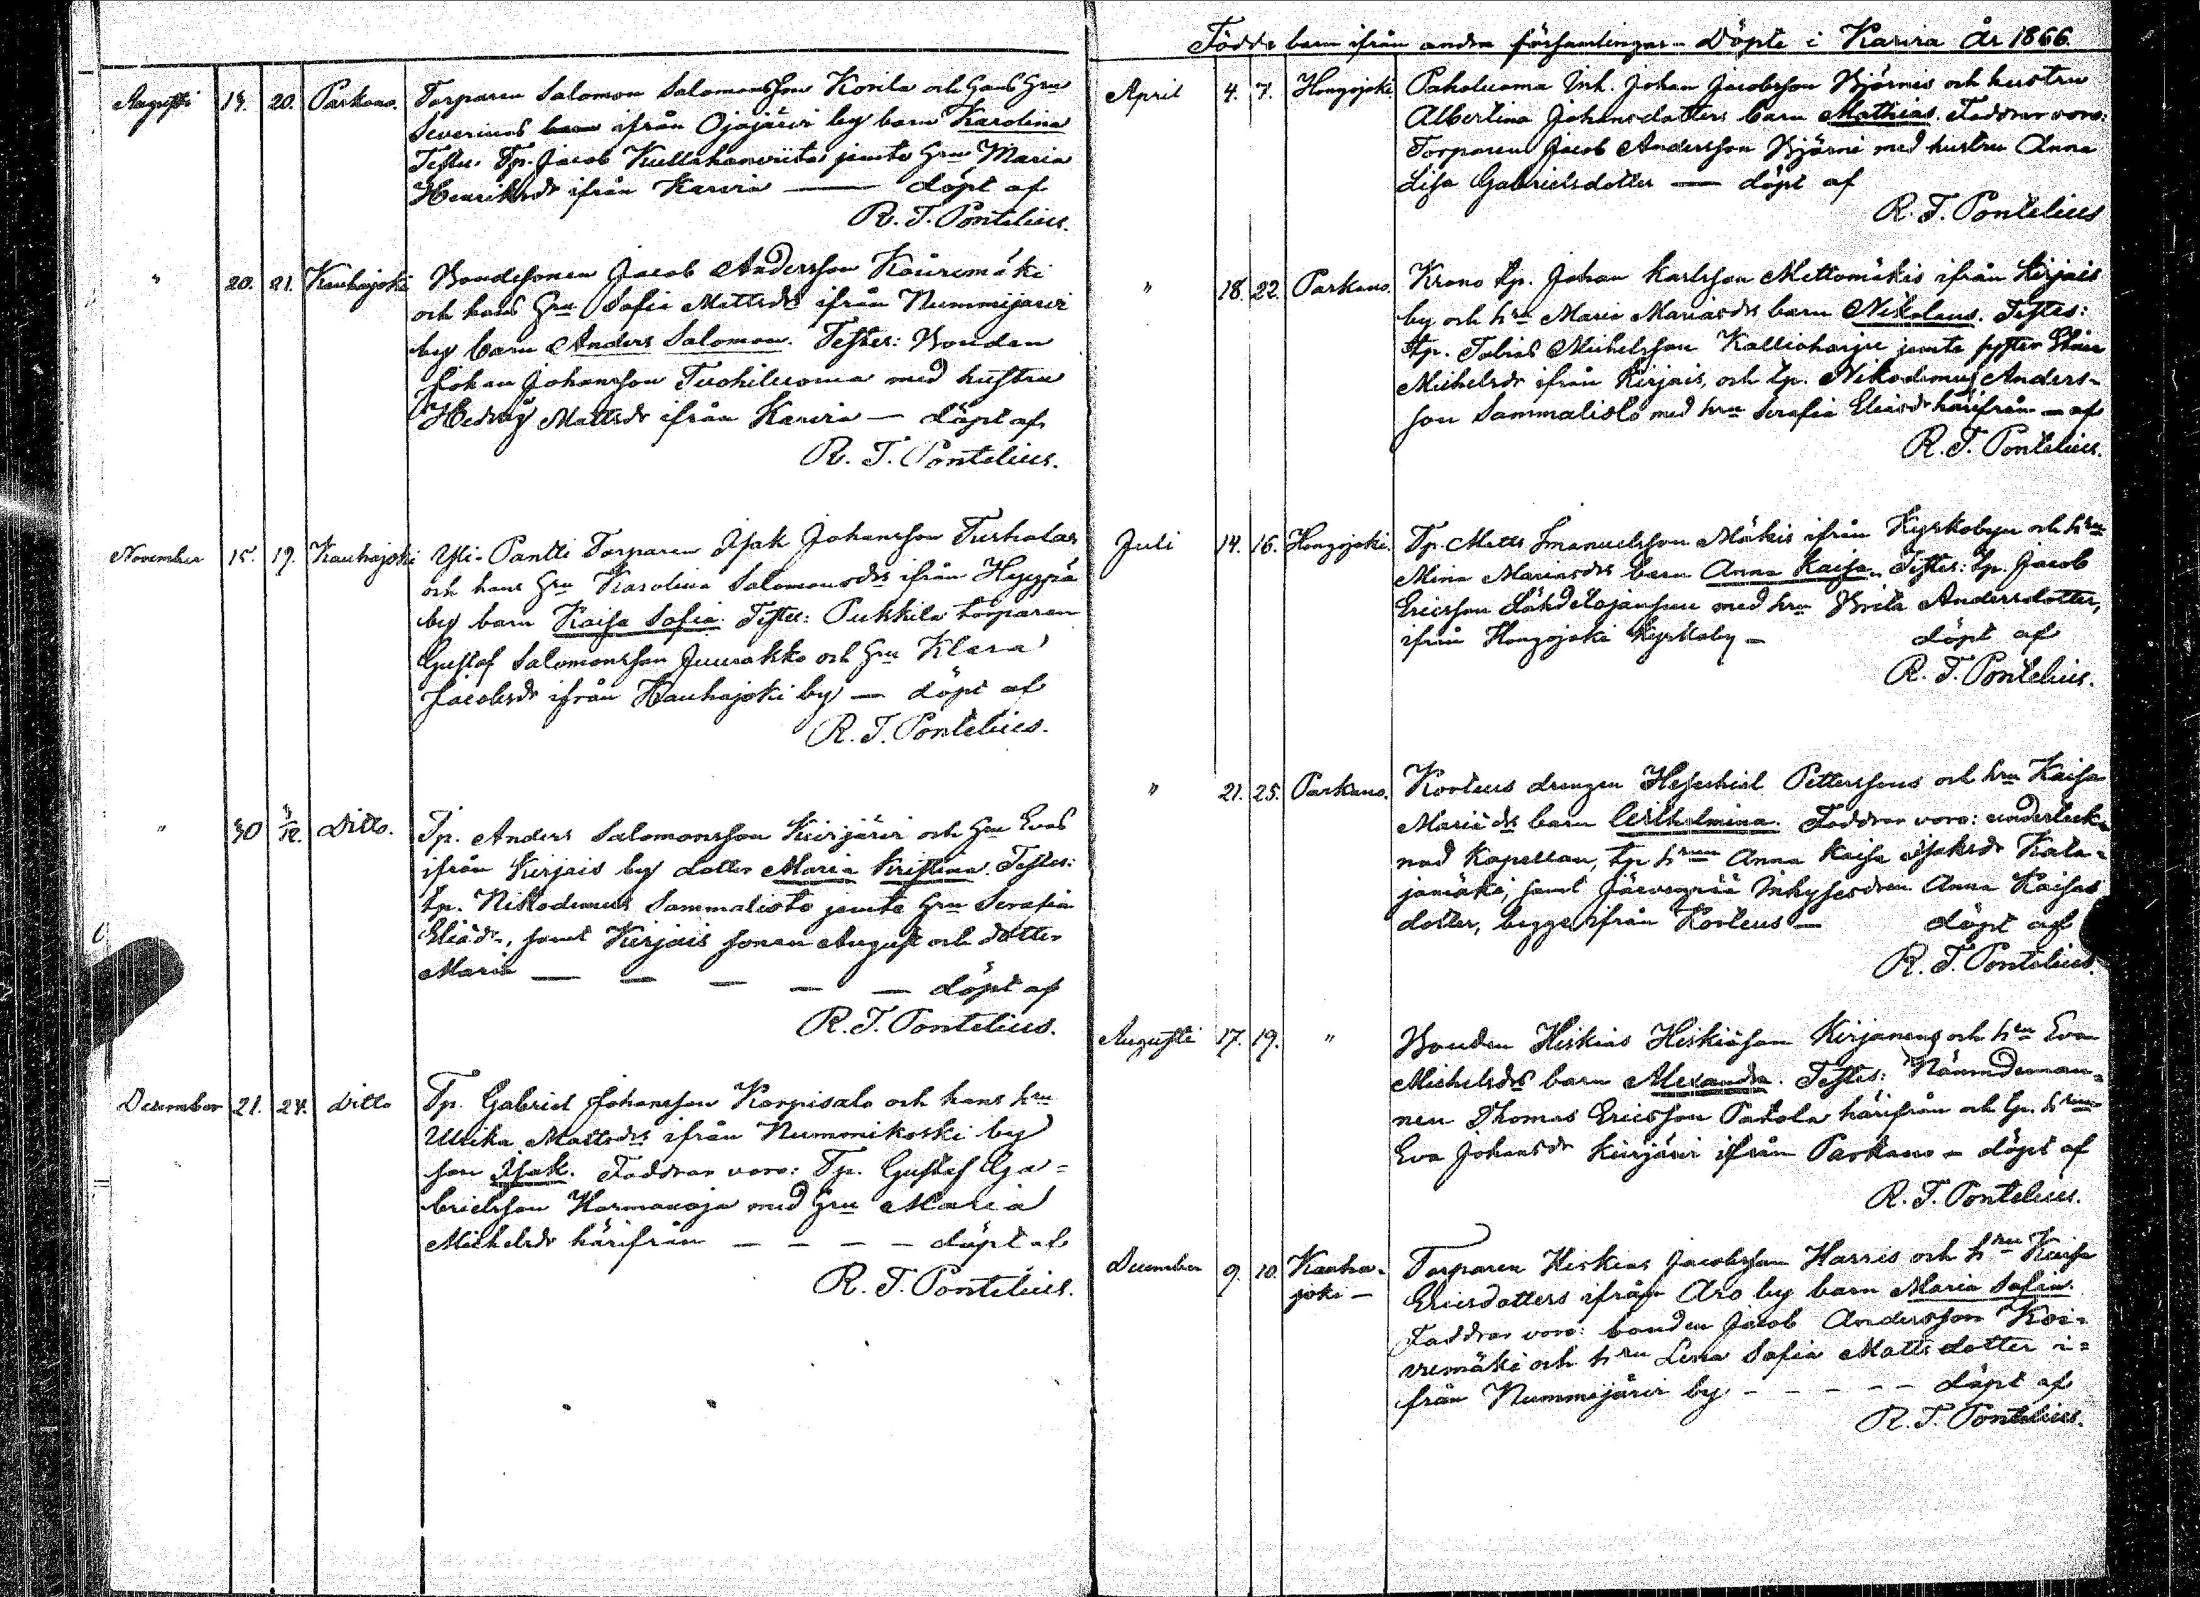 Augusti 19. 20. Parkano. Torparen Salomon Salomonsson Konila och hans hru
Severinas barn ifrån Ojajärvi by barn Karolina
Testes. Tp. Jacob Kullahanviita jemte hru Maria
Henriksdr ifrån Karvia — döpt af
R. T. Pontelius.
" 20. 21. Kauhajoki Bondesonen Jacob Andersson Koivemäki
och hans hru Sofia Mattsdrs ifrån Nummijärvi
by barn Anders Salomon. Testes: Bonden
Johan Johansson Tuohiluoma med hustru
Hedvig Mattsdr ifrån Karvia — döpt af
R. T. Pontelius.
November 15. 19. Kauhajoki Yli-Pantti Torparen Isak Johansson Turholas
och hans hru Karolina Salomonsdrs ifrån Hyyppä
by barn Kaisa Sofia. Testes: Pukkila torparen
Gustaf Salomonsson Juurakko och hru Klara
Jacobsdr ifrån Kauhajoki by — döpt af
R. T. Pontelius.
" 30 3/12. Ditto. Tp. Anders Salomonsson Kiirjärvi och hru Evas
ifrån Kirjais by dotter Maria Kristina. Testes:
tp. Nikodemus Sammalisto jemte hru Serafia
Eliædr., samt Kirjais sonen August och dotter
Maria — — — — — döpt af
R. T. Pontelius.
December 21. 24. Ditto Tp. Gabriel Johansson Korpisalo och hans hru
Ulrika Mattsdrs ifrån Nummikoski by
son Isak. Faddrar voro: Tp. Gustaf Ga=
brielsson Harmanoja med hru Maria
Michelsdr härifrån — — — — döpt af
R. T. Pontelius.
Födde barn ifrån andra församlingar – döpte i Karvia År 1866.
April 4. 7. Hongojoki. Paholuoma Inh. Johan Jacobsson Björnis och hustru
Albertina Johansdotters barn Mathias. Faddrar voro:
Torparen Jacob Andersson Björni med hustru Anna
Lisa Gabrielsdotter — döpt af
R. T. Pontelius
" 18. 22. Parkano. Krono tp. Johan Karlsson Mettomäkis ifrån Kirjais
by och hru Maria Mariædrs barn Nikolaus. Testes:
tp. Tobias Michelsson Kallioharju jemte syster Stina
Michelsdr ifrån Kirjais, och tp. Nikodemus Anders-
son Sammalisto med hru Serafia Eliædr härifrån – af
R. T. Pontelius.
Juli 14. 16. Hongojoki. Tp. Matts Imanuelsson Mäkis ifrån Kyrkobyn och hru
Mina Mariasdrs barn Anna Kaisa. Testes: tp. Jacob
Ericsson Lähdelajansuu med hru Brita Andersdotter,
ifrån Hongojoki Kyrkoby – döpt af
R. T. Pontelius.
" 21. 25. Parkano. Kovelus drengen Hesekiel Petterssons och hru Kaisa
Mariædrs barn Wilhelmina. Faddrar voro: underteck-
nad Kapellan, tp hrun Anna Kaisa Isaksdr Kala-
jamäki, samt Järvenpää Inhyses Anna Kaisas
dotter, begge ifrån Kovelus – döpt af
R. T. Pontelius.
Augusti 17. 19. " Bonden Hiskias Hiskiason Kirjanens och hru Eva
Michelsdrs barn Alexandra. Testes: Nämndeman-
nen Thomas Ericsson Pakola härifrån och tp. hrun
Eva Johansdr Kiirjärvi ifrån Parkano – döpt af
R. T. Pontelius.
December 9. 10. Kauha-
joki – Torparen Hiskias Jacobsson Harris och hru Kaisa
Ericsdotters ifrån Aro by barn Maria Sofia.
Faddrar voro: bonden Jacob Andersson Koi-
vemäki och hru Lena Sofia Mattsdotter i=
från Nummijärvi by – – – – – döpt af
R. T. Pontelius.